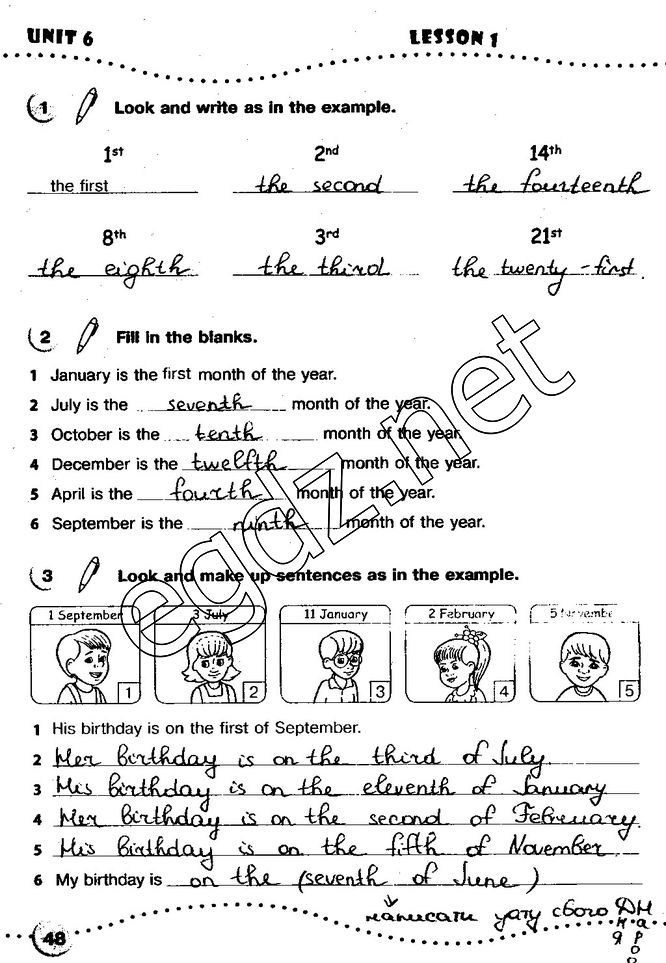 UNIT 6 LESSON 1
1 Look and write as in the example.
1st 2nd 14th
the first the second the fourteenth
8th 3rd 21st
the eighth the third the twenty-first.
2 Fill in the blanks.
1 January is the first month of the year.
2 July is the seventh month of the year.
3 October is the tenth month of the year.
4 December is the twelfth month of the year.
5 April is the fourth month of the year.
6 September is the ninth month of the year.
egdz.net
3 Look and make up sentences as in the example.
1 September 3 July 11 January 2 February 5 November
1 2 3 4 5
1 His birthday is on the first of September.
2 Her birthday is on the third of July.
3 His birthday is on the eleventh of January
4 Her birthday is on the second of February.
5 His birthday is on the fifth of November.
6 My birthday is on the (seventh of June)
написати дату свого
48